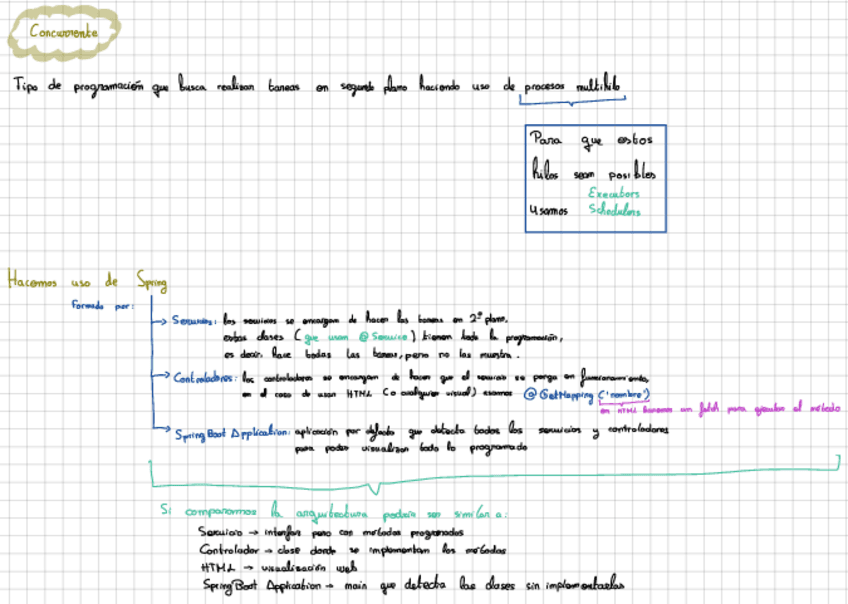 Concurrente
Tipo de programación que busca realizar tareas en segundo plano haciendo uso de procesos multihilo
Para que estos
hilos sean posibles
Executors
usamos Schedulers
Hacemos uso de Spring
Formado por:
Servicios: los servicios se encargan de hacer las tareas en 2º plano.
estas clases (que usan @Service) tienen toda la programación,
es decir, hace todas las tareas, pero no las muestra.
Controladores: los controladores se encargan de hacer que el servicio se ponga en funcionamiento,
en el caso de usar HTML (o cualquier visual) usamos @GetMapping ('nombre')
en HTML hacemos un fetch para ejecutar el método
SpringBoot Application: aplicación por defecto que detecta todos los servicios y controladores
para poder visualizar todo lo programado
Si comparamos la arquitectura podría ser similar a:
Servicio → interfaz pero con métodos programados
Controlador → clase donde se implementan los métodos
HTML → visualización web
SpringBoot Application → main que detecta las clases sin implementarlas